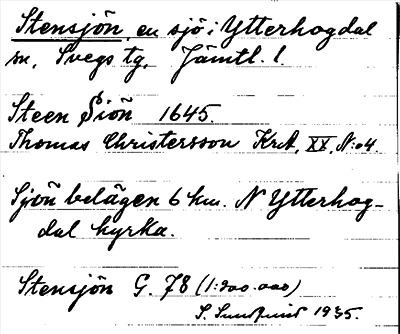 Stensjön, en sjö i Ytterhogdal
sn, Svegs tg, Jämtl. l.
Steen Siön 1645.
Thomas Christersson Krt. XX, N:o 4.
Sjön belägen 6 km. N Ytterhog-
dal kyrka.
Stensjön G. 78 (1:200.000)
S. Sundquist 1935.